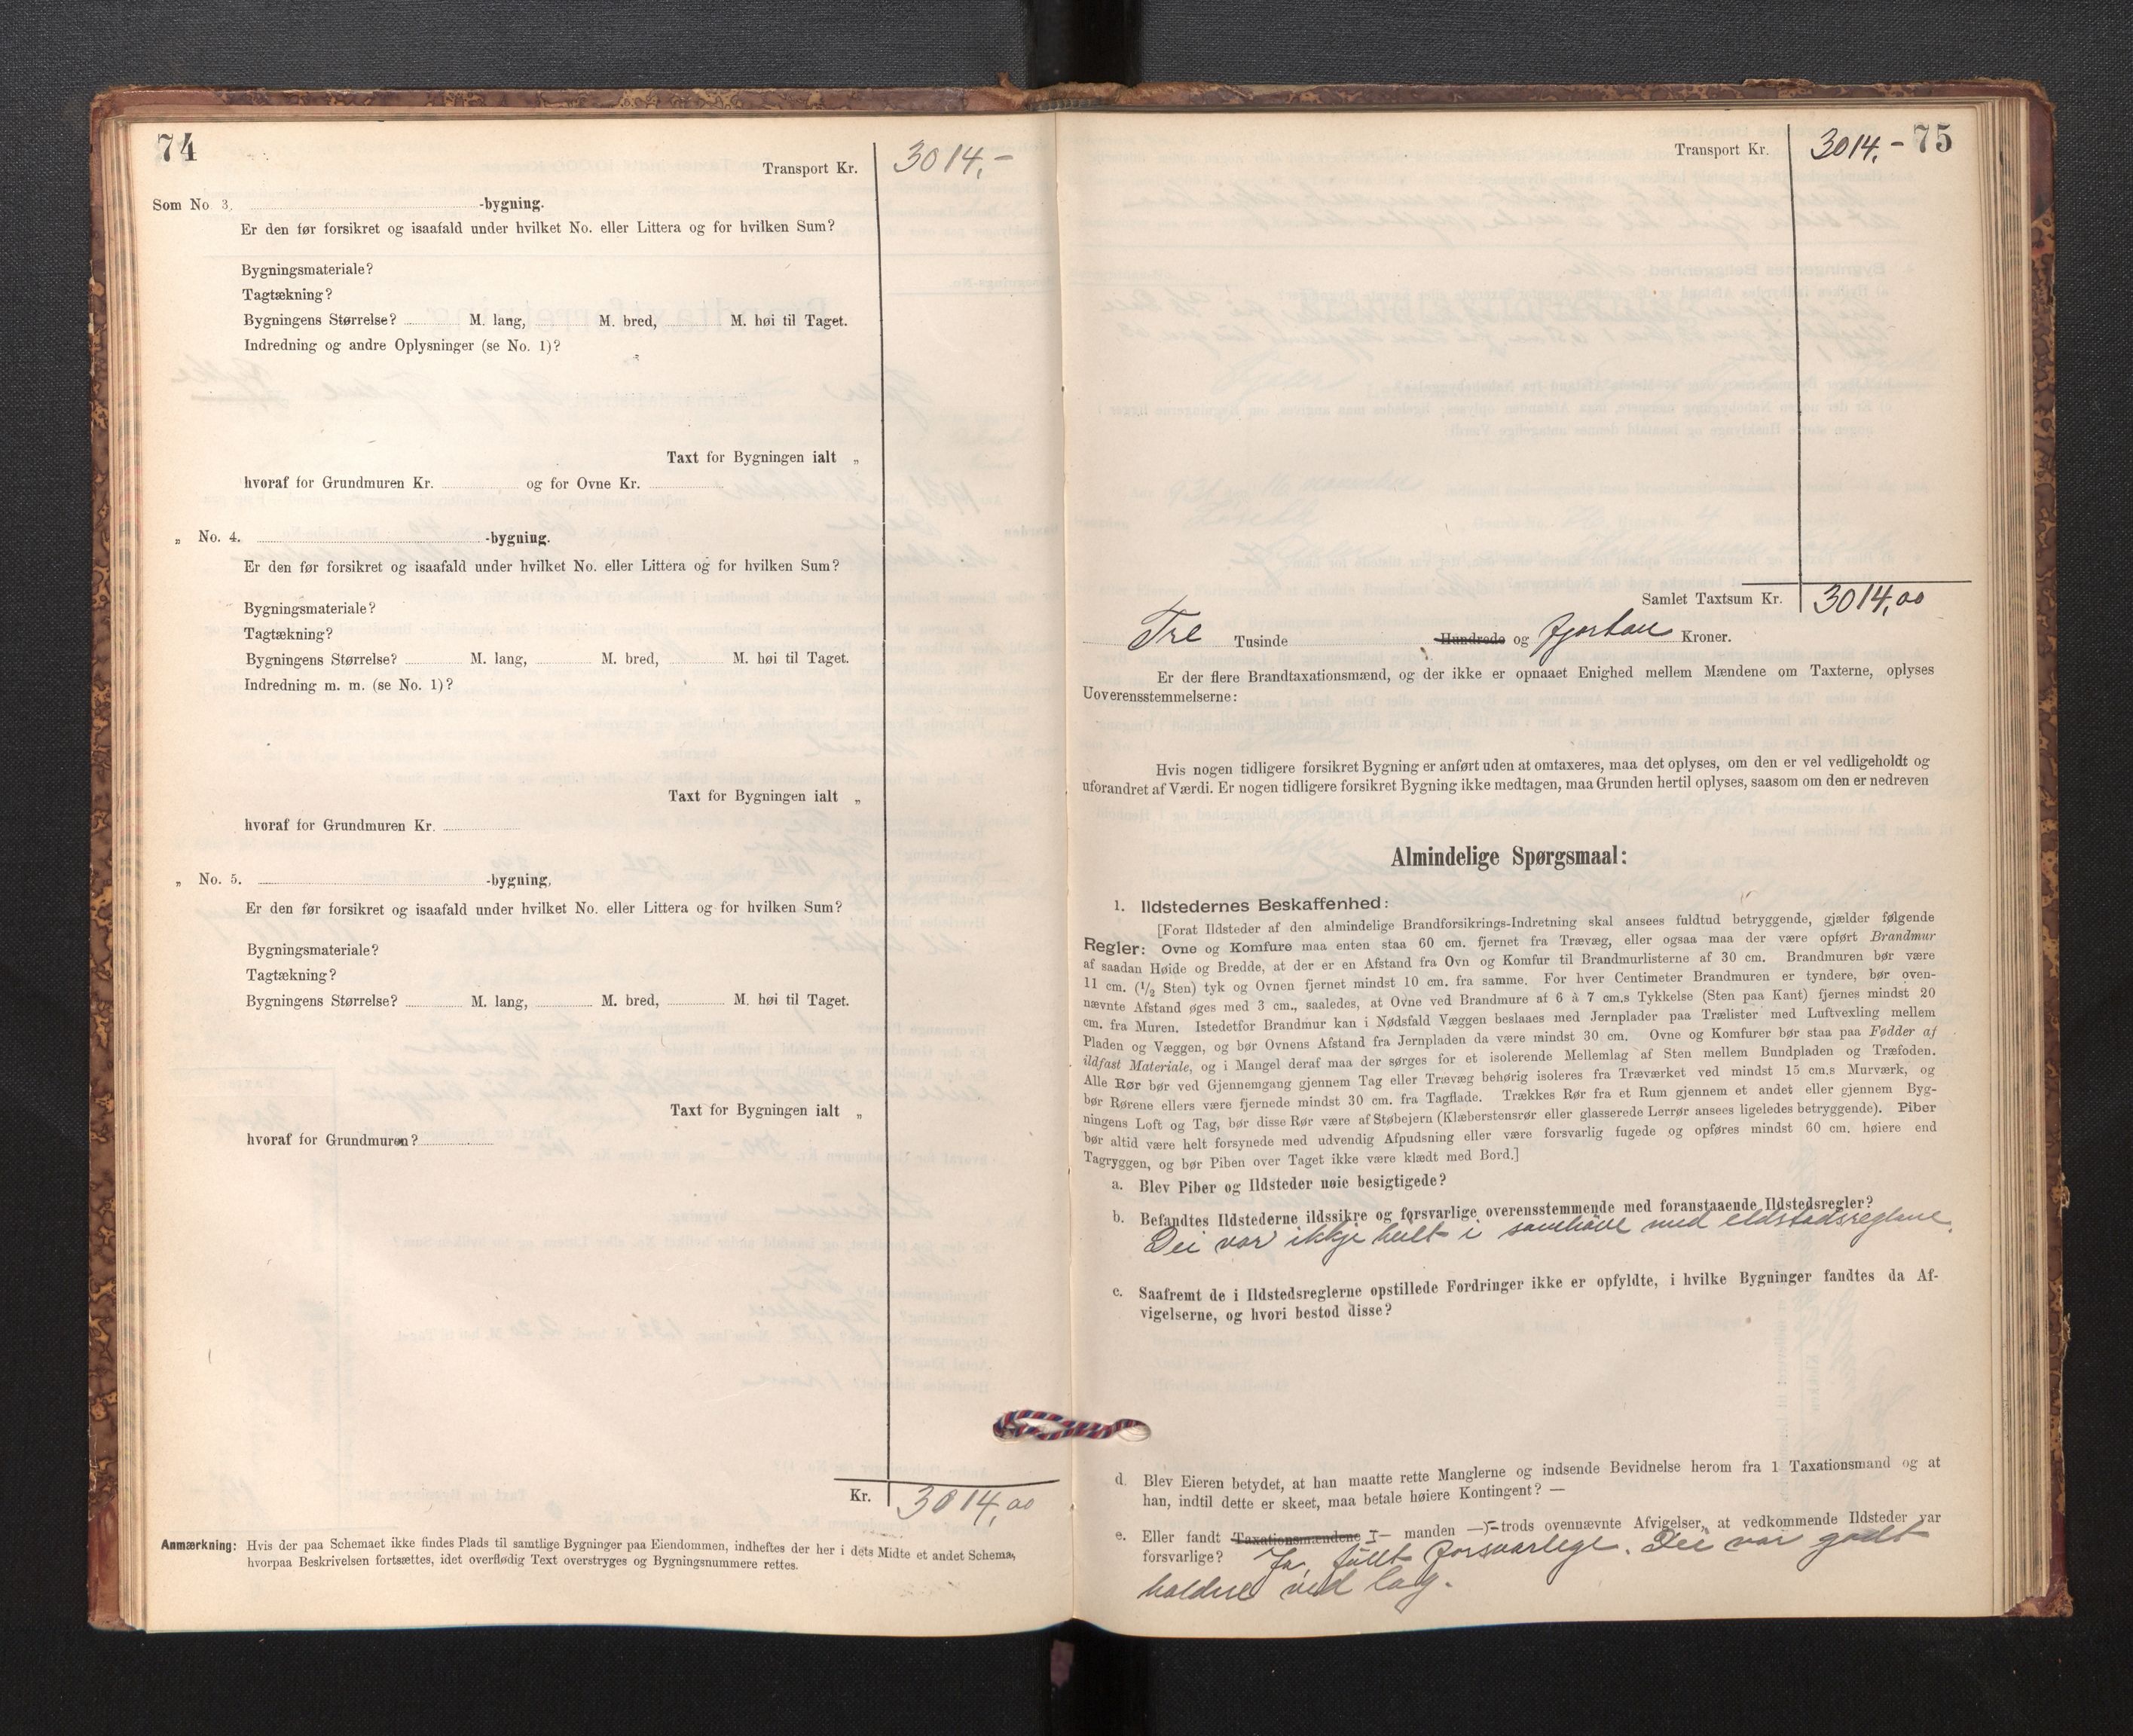 74
Transport Kr. 3014,-
Som No 3, -bygning.
Er den før forsikret og isaafald under hvilket No. eller Littera og for hvilken Sum?
Bygningsmateriale?
Tagtækning?
Bygningens Størrelse? M. lang, M. bred, M. høi til Taget.
Indredning og andre Oplysninger (se No. 1)?
Taxt for Bygningen ialt „
hvoraf for Grundmuren Kr. og for Ovne Kr.
„ No. 4. -bygning.
Er den før forsikret og isaafald under hvilket No. eller Littera og for hvilken Sum?
Bygningsmateriale?
Tagtækning?
Bygningens Størrelse? M. lang, M. bred, M. høi til Taget.
Indredning m. m. (se No. 1)?
Taxt for Bygningen ialt „
hvoraf for Grundmuren Kr.
„ No. 5. -bygning,
Er den før forsikret og isaafald under hvilket No. eller Littera og for hvilken Sum?
Bygningsmateriale?
Tagtækning?
Bygningens Størrelse? M. lang, M. bred, M. høi til Taget.
Taxt for Bygningen ialt „
hvoraf for Grundmuren?
Kr. 3014,00
Anmærkning: Hvis der paa Schemaet ikke findes Plads til samtlige Bygninger paa Eiendommen, indheftes der her i dets Midte et andet Schema,
hvorpaa Beskrivelsen fortsættes, idet overflødig Text overstryges og Bygningsnummere rettes.
75
Transport Kr. 3014,-
Samlet Taxtsum Kr. 3014,00
Tre Tusinde Hundrede og fjortan Kroner.
Er der flere Brandtaxationsmænd, og der ikke er opnaaet Enighed mellem Mændene om Taxterne, oplyses
Uoverensstemmelserne:
Hvis nogen tidligere forsikret Bygning er anført uden at omtaxeres, maa det oplyses, om den er vel vedligeholdt og
uforandret af Værdi. Er nogen tidligere forsikret Bygning ikke medtagen, maa Grunden hertil oplyses, saasom om den er nedreven
Almindelige Spørgsmaal:
1. Ildstedernes Beskaffenhed:
[Forat Ildsteder af den almindelige Brandforsikrings-Indretning skal ansees fuldtud betryggende, gjælder følgende
Regler: Ovne og Komfure maa enten staa 60 cm. fjernet fra Trævæg, eller ogsaa maa der være opført Brandmur
af saadan Høide og Bredde, at der er en Afstand fra Ovn og Komfur til Brandmurlisterne af 30 cm. Brandmuren bør være
11 cm. (1/2 Sten) tyk og Ovnen fjernet mindst 10 cm. fra samme. For hver Centimeter Brandmuren er tyndere, bør oven-
nævnte Afstand øges med 3 cm., saaledes, at Ovne ved Brandmure af 6 à 7 cm.s Tykkelse (Sten paa Kant) fjernes mindst 20
cm. fra Muren. Istedetfor Brandmur kan i Nødsfald Væggen beslaaes med Jernplader paa Trælister med Luftvexling mellem
Pladen og Væggen, og bør Ovnens Afstand fra Jernpladen da være mindst 30 cm. Ovne og Komfurer bør staa paa Fødder af
ildfast Materiale, og i Mangel deraf maa der sørges for et isolerende Mellemlag af Sten mellem Bundpladen og Træfoden.
Alle Rør bør ved Gjennemgang gjennem Tag eller Trævæg behørig isoleres fra Træværket ved mindst 15 cm.s Murværk, og
bør Rørene ellers være fjernede mindst 30 cm. fra Tagflade. Trækkes Rør fra et Rum gjennem et andet eller gjennem Byg-
ningens Loft og Tag, bør disse Rør være af Støbejern (Klæberstensrør eller glasserede Lerrør ansees ligeledes betryggende). Piber
bør altid være helt forsynede med udvendig Afpudsning eller være forsvarlig fugede og opføres mindst 60 cm. høiere end
Tagryggen, og bør Piben over Taget ikke være klædt med Bord.]
a. Blev Piber og Ildsteder nøie besigtigede?
b. Befandtes Ildstederne ildssikre og forsvarlige overensstemmende med foranstaaende Ildstedsregler?
Dei var ikkje heilt i samhøve med eldstadsreglane.
c. Saafremt de i Ildstedsreglerne opstillede Fordringer ikke er opfyldte, i hvilke Bygninger fandtes da Af-
vigelserne, og hvori bestod disse?
d. Blev Eieren betydet, at han maatte rette Manglerne og indsende Bevidnelse herom fra 1 Taxationsmand og at
han, indtil dette er skeet, maa betale høiere Kontingent? —
e. Eller fandt Taxationsmændene — manden — trods ovennævnte Afvigelser, at vedkommende Ildsteder var
forsvarlige? Ja, fullt forsvarlege. Dei var godt
haldne ved lag.